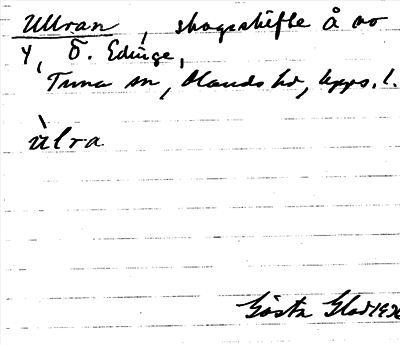 Ullran, skogsskifte å no
4, Ö. Edinge,
Tuna sn, Olands hd, Upps. l.
ùlra
Gösta Glad 1936